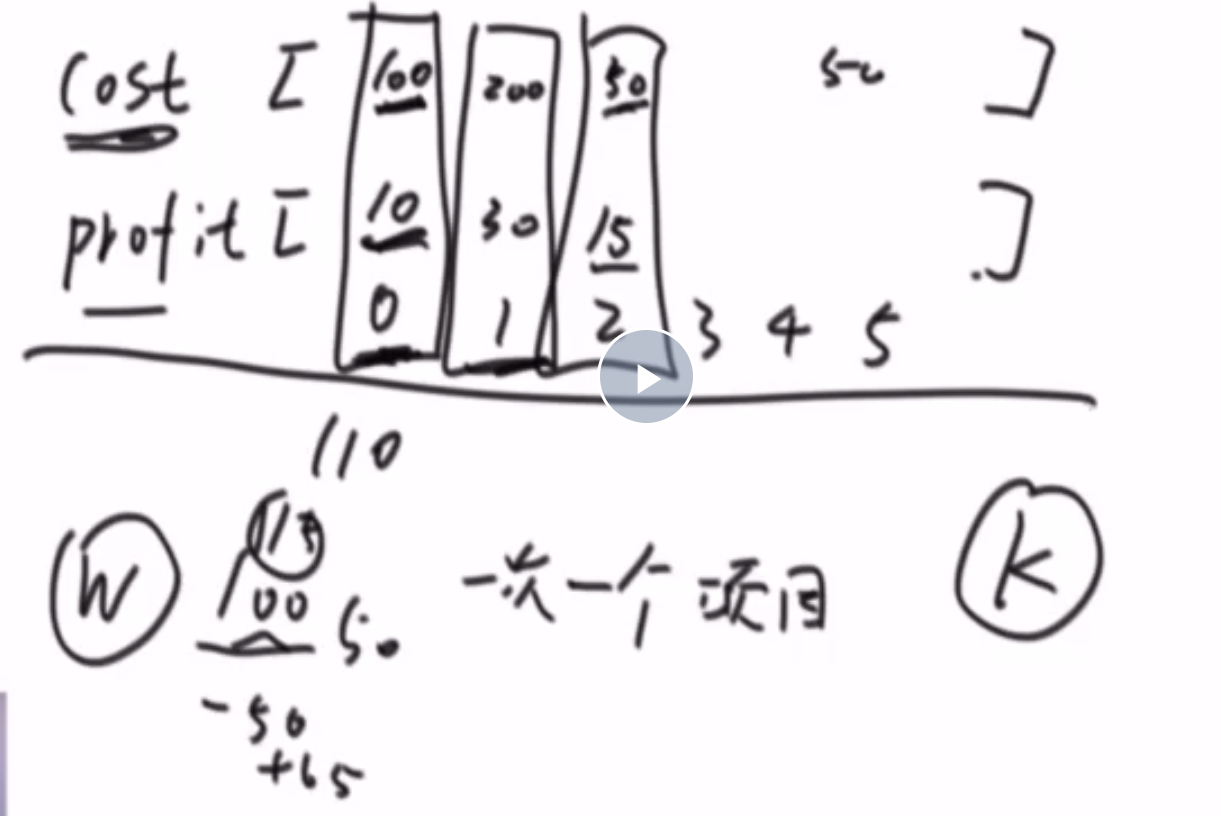 Cost [ 100 200 50 50 ]
profit [ 10 30 15 ]
0 1 2 3 4 5
110
115
W 100 50 一次一个项目 K
-50
+65